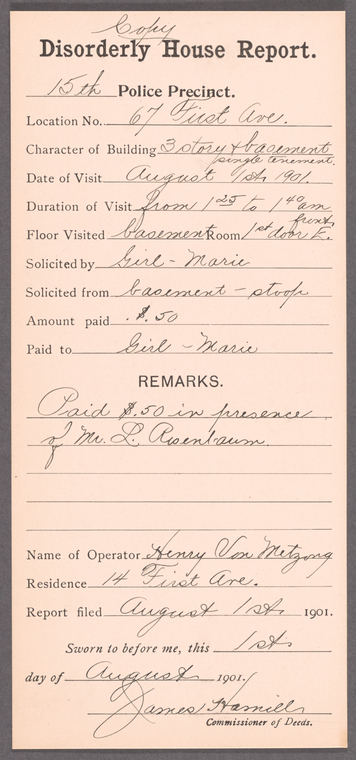 Copy
Disorderly House Report.
15th Police Precinct.
Location No. 67 First Ave.
Character of Building 3 story & basement
single tenement.
Date of Visit August 1st 1901.
Duration of Visit from 1 25 to 1 40 am
front
Floor Visited basement Room 1st door E.
Solicited by Girl - Marie
Solicited from basement - stoop
Amount paid $.50
Paid to Girl - Marie
REMARKS.
Paid $.50 in presence
of Mr. L. Rosenbaum.
Name of Operator Henry Von Metzong
Residence 14 First Ave.
Report filed August 1st 1901.
Sworn to before me, this 1st
day of August 1901.
James Hamill
Commissioner of Deeds.